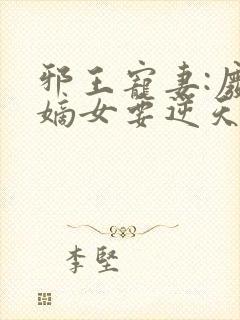 邪王宠妻:废
嫡女要逆天
李坚